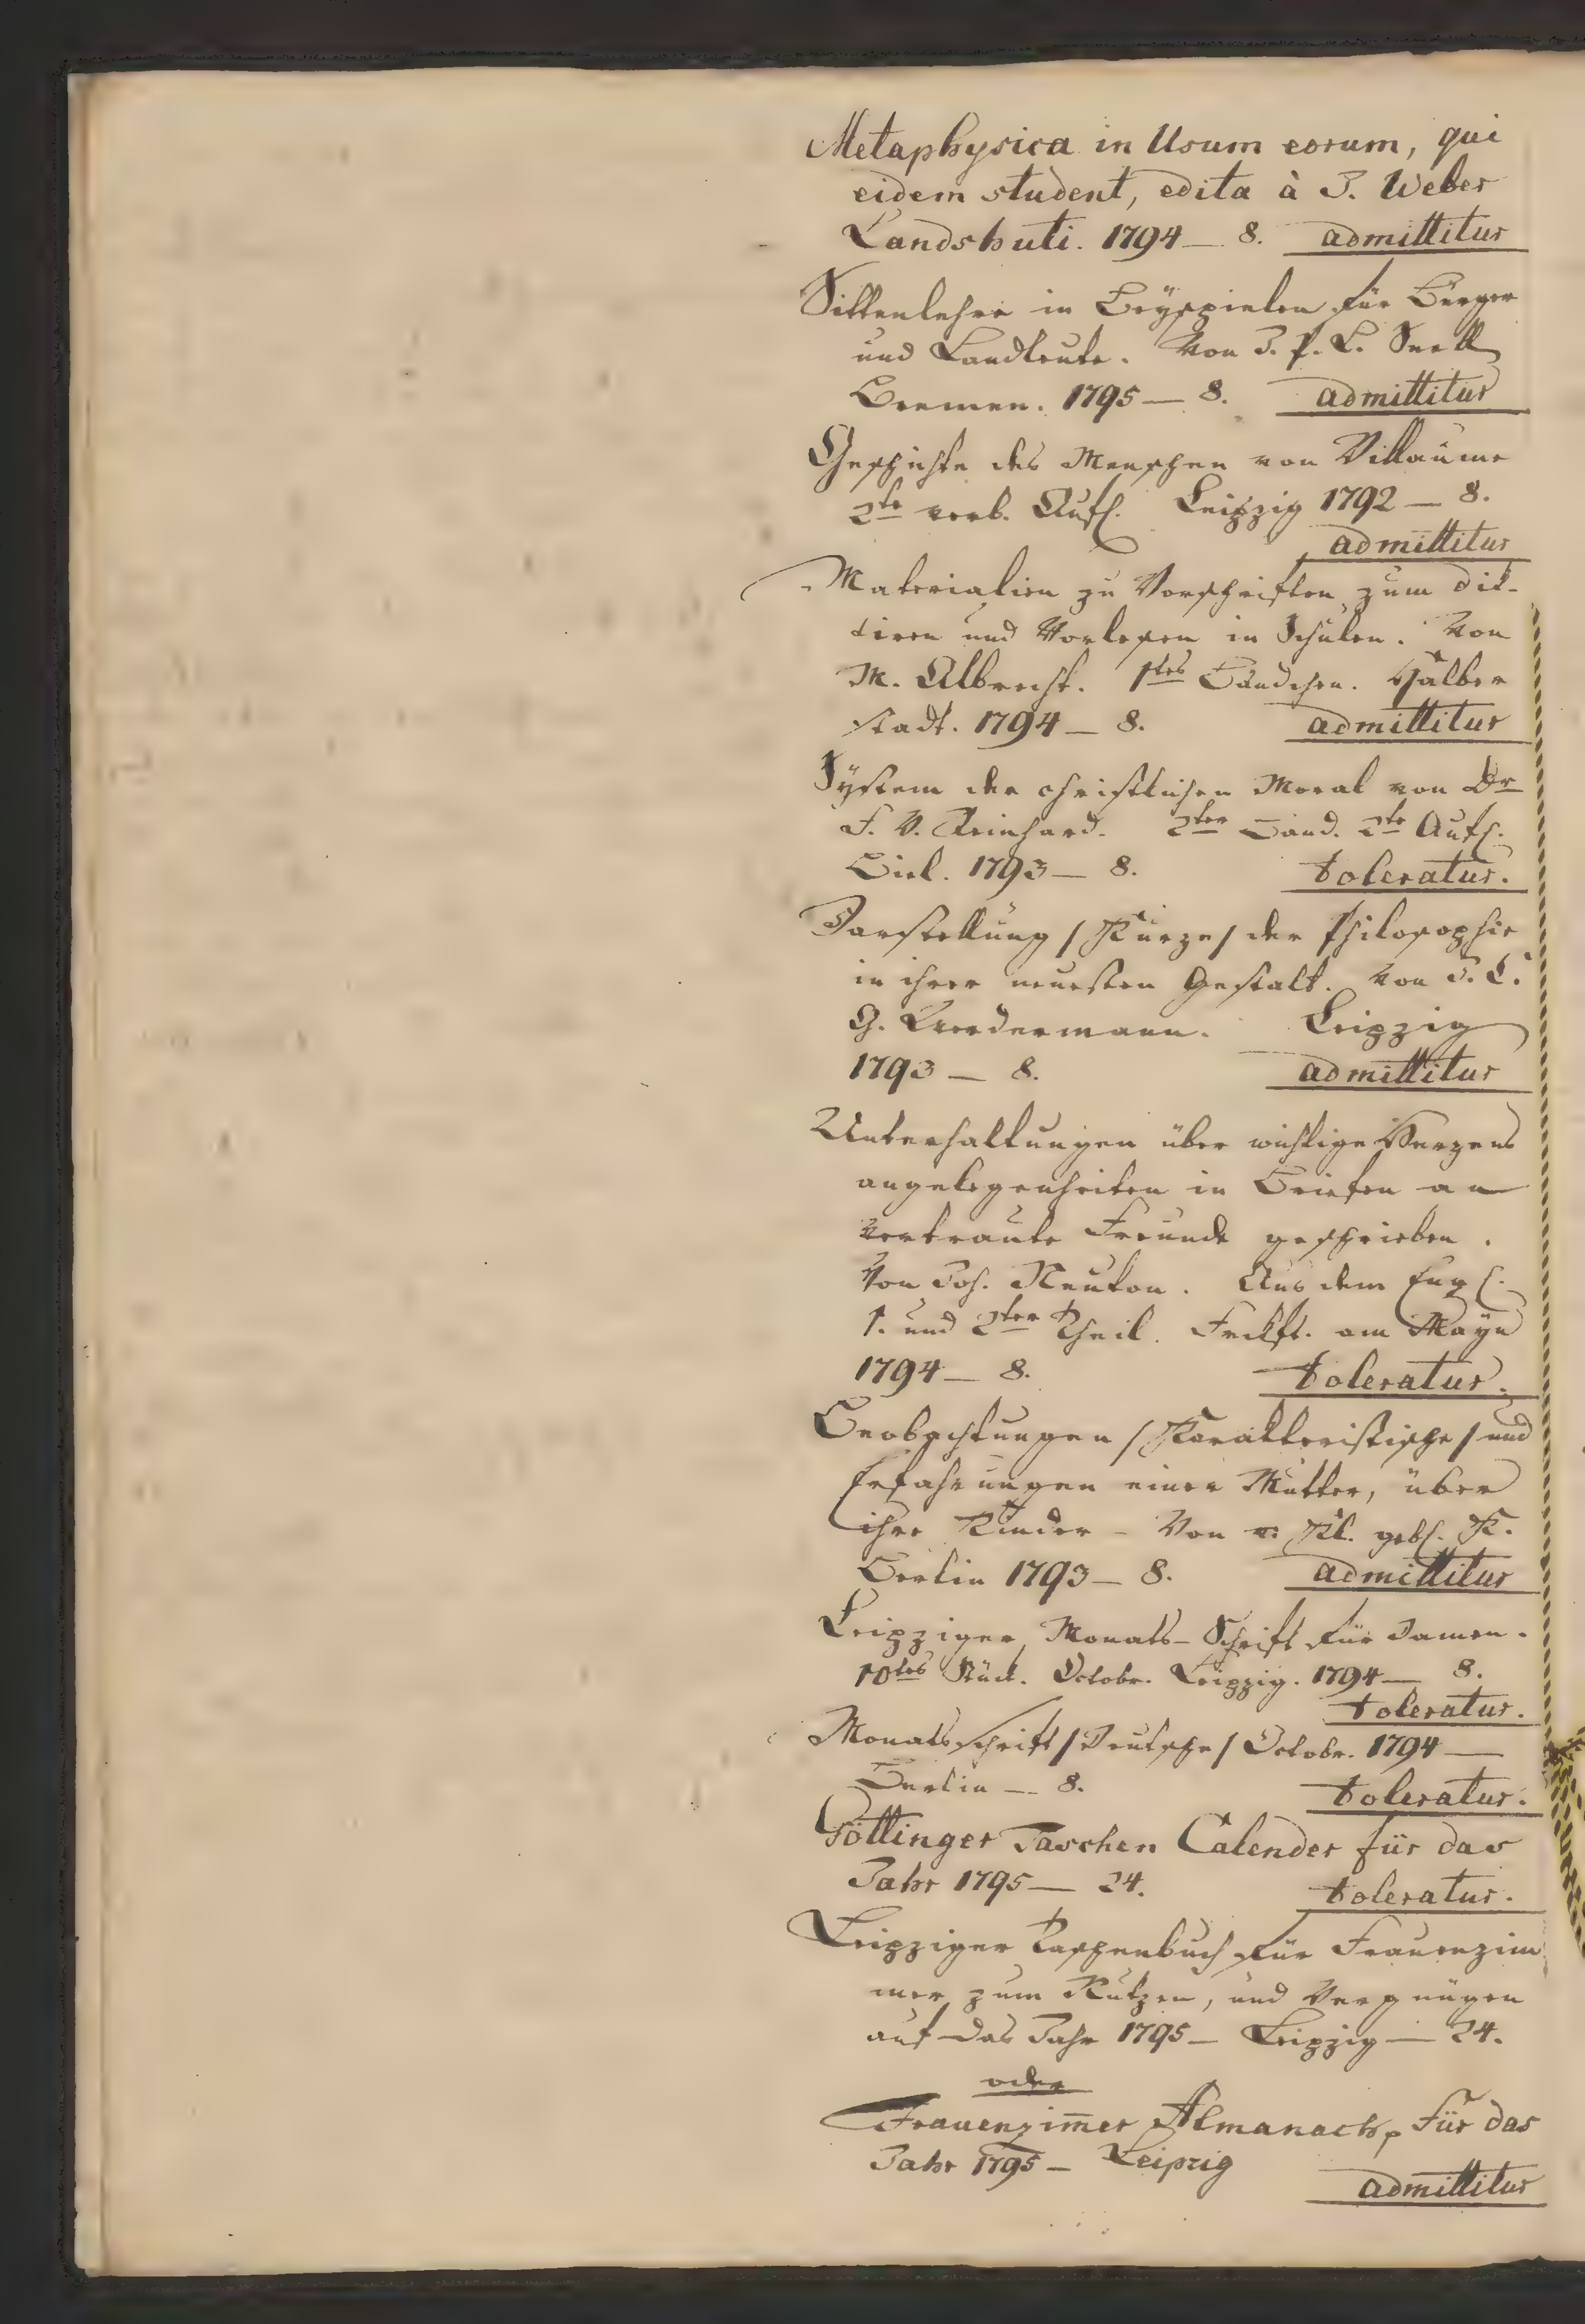 Metaphysica in Usum eorum, qui
eidem student, edita à J. Weber
Landshuti. 1794 — 8. admittitur
Sittenlehre in Beyspielen für Bürger
und Landleute. Von J. P. L. Snell
Bremen. 1795 — 8. admittitur
Geschichte des Menschen von Villaume
2te verb. Aufl. Leipzig 1792 — 8.
admittitur
Materialien zu Vorschriften, zum dik-
tiren und Vorlesen in Schulen. Von
M. Albrecht. 1tes Bändchen. Halber
stadt. 1794 — 8. admittitur
System der christlichen Moral von Dr
F. V. Reinhard. 2ter Band. 2te Aufl.
Biel. 1793 — 8. toleratur.
Darstellung /Kurze/ der Philosophie
in ihrer neuesten Gestalt. Von J. C.
G. Werdermann. Leipzig
1793 — 8. admittitur
Unterhaltungen über wichtige Herzens
angelegenheiten in Briefen an
vertraute Freunde geschrieben.
Von Joh. Neuton. Aus dem Engl.
1. und 2ter Theil. Frckft. am Mayn
1794 — 8. toleratur.
Beobachtungen /Karakteristische/ und
Erfahrungen einer Mutter, über
ihre Kinder – Von v. Kl. gebl. K.
Berlin 1793 — 8. admittitur
Leipziger Monats-Schrift für Damen.
10tes Stück. Octobr. Leipzig. 1794 — 8.
toleratur.
Monatsschrift /Deutsche/ Octobr. 1794 —
Berlin — 8. toleratur.
Göttinger Taschen Calender für das
Jahr 1795 — 24. toleratur.
Leipziger Taschenbuch für Frauenzim
mer, zum Nutzen, und Vergnügen
auf das Jahr 1795 — Leipzig — 24.
oder
Frauenzim̄er Almanach, für das
Jahr 1795 – Leipzig
admittitur